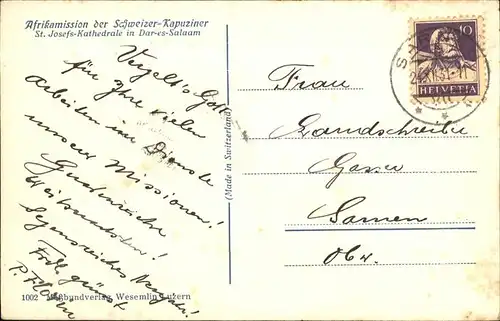 Afrikamission der Schweizer-Kapuziner
St. Josefs-Kathedrale in Dar-es-Salaam
Vergelt's Gott
für Ihre vielen
Arbeiten im Dienste
unserer Missionen!
Gnadenreiche
Weihnachten!
Segensreiches Neujahr!
Frdl. grüsst
P.
(Made in Switzerland)
10
HELVETIA
Frau
Landschreiber
Gasser
Sarnen
Obw.
1002 Meßbundverlag Wesemlin Luzern